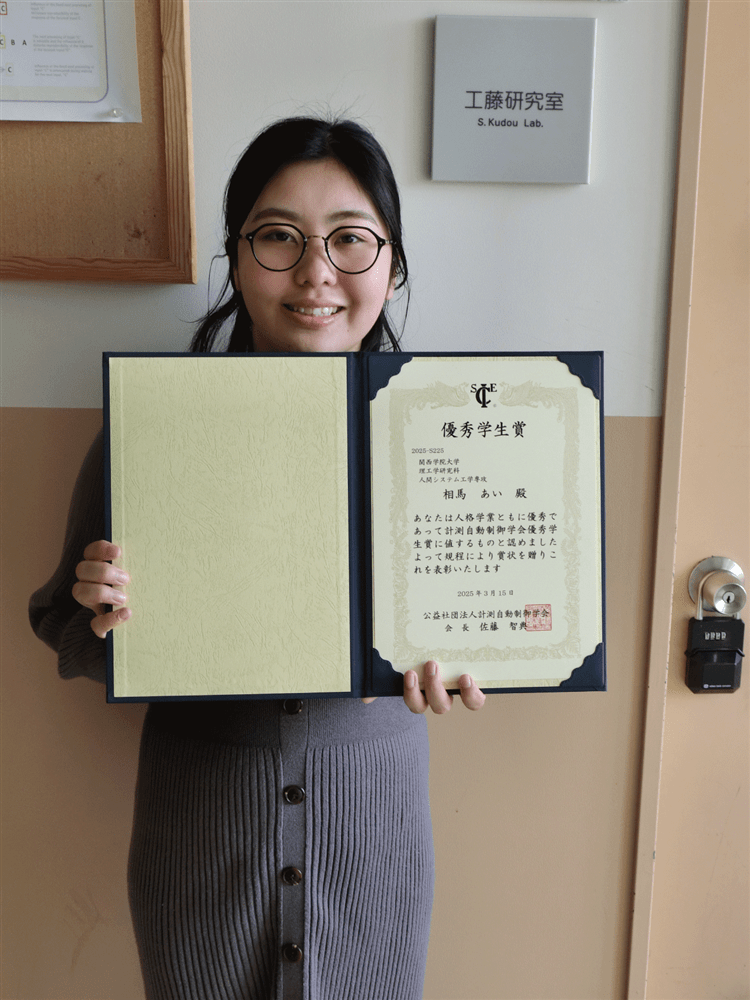 C
C B A
C
工藤研究室
S. Kudou Lab.
SICE
優秀学生賞
2025-S225
関西学院大学
理工学研究科
人間システム工学専攻
相馬 あい 殿
あなたは人格学業ともに優秀で
あって計測自動制御学会優秀学
生賞に値するものと認めました
よって規程により賞状を贈りこ
れを表彰いたします
2025年3月15日
公益社団法人計測自動制御学会
会長 佐藤 智典